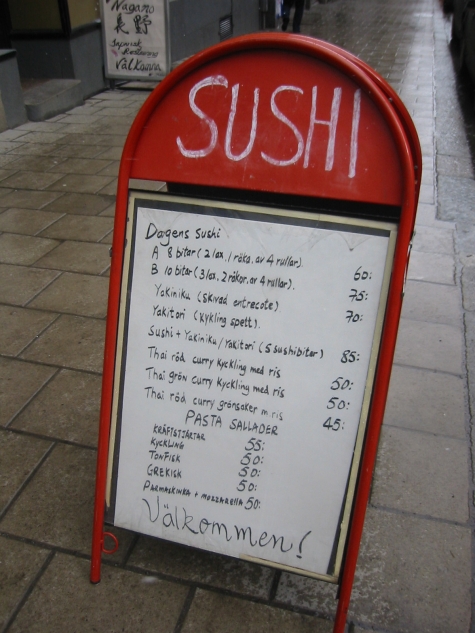 Nagano
長野
Japansk Restaurang
Välkomna
SUSHI
Dagens sushi
A 8 bitar (2 lax, 1 räka, av 4 rullar).
60:
B 10 bitar (3 lax, 2 räkor, av 4 rullar).
75:
Yakiniku (skivad entrecote)
70:
Yakitori (kykling spett).
Sushi + Yakiniku/Yakitori (5 sushibitar) 85:
Thai röd curry kyckling med ris 50:
Thai grön curry kyckling med ris 50:
Thai röd curry grönsaker m ris 45:
PASTA SALLADER
KRÄFTSTJÄRTAR 55:
KYCKLING 50:
TONFISK 50:
GREKISK 50:
PARMASKINKA + MOZZARELLA 50:
Välkommen!